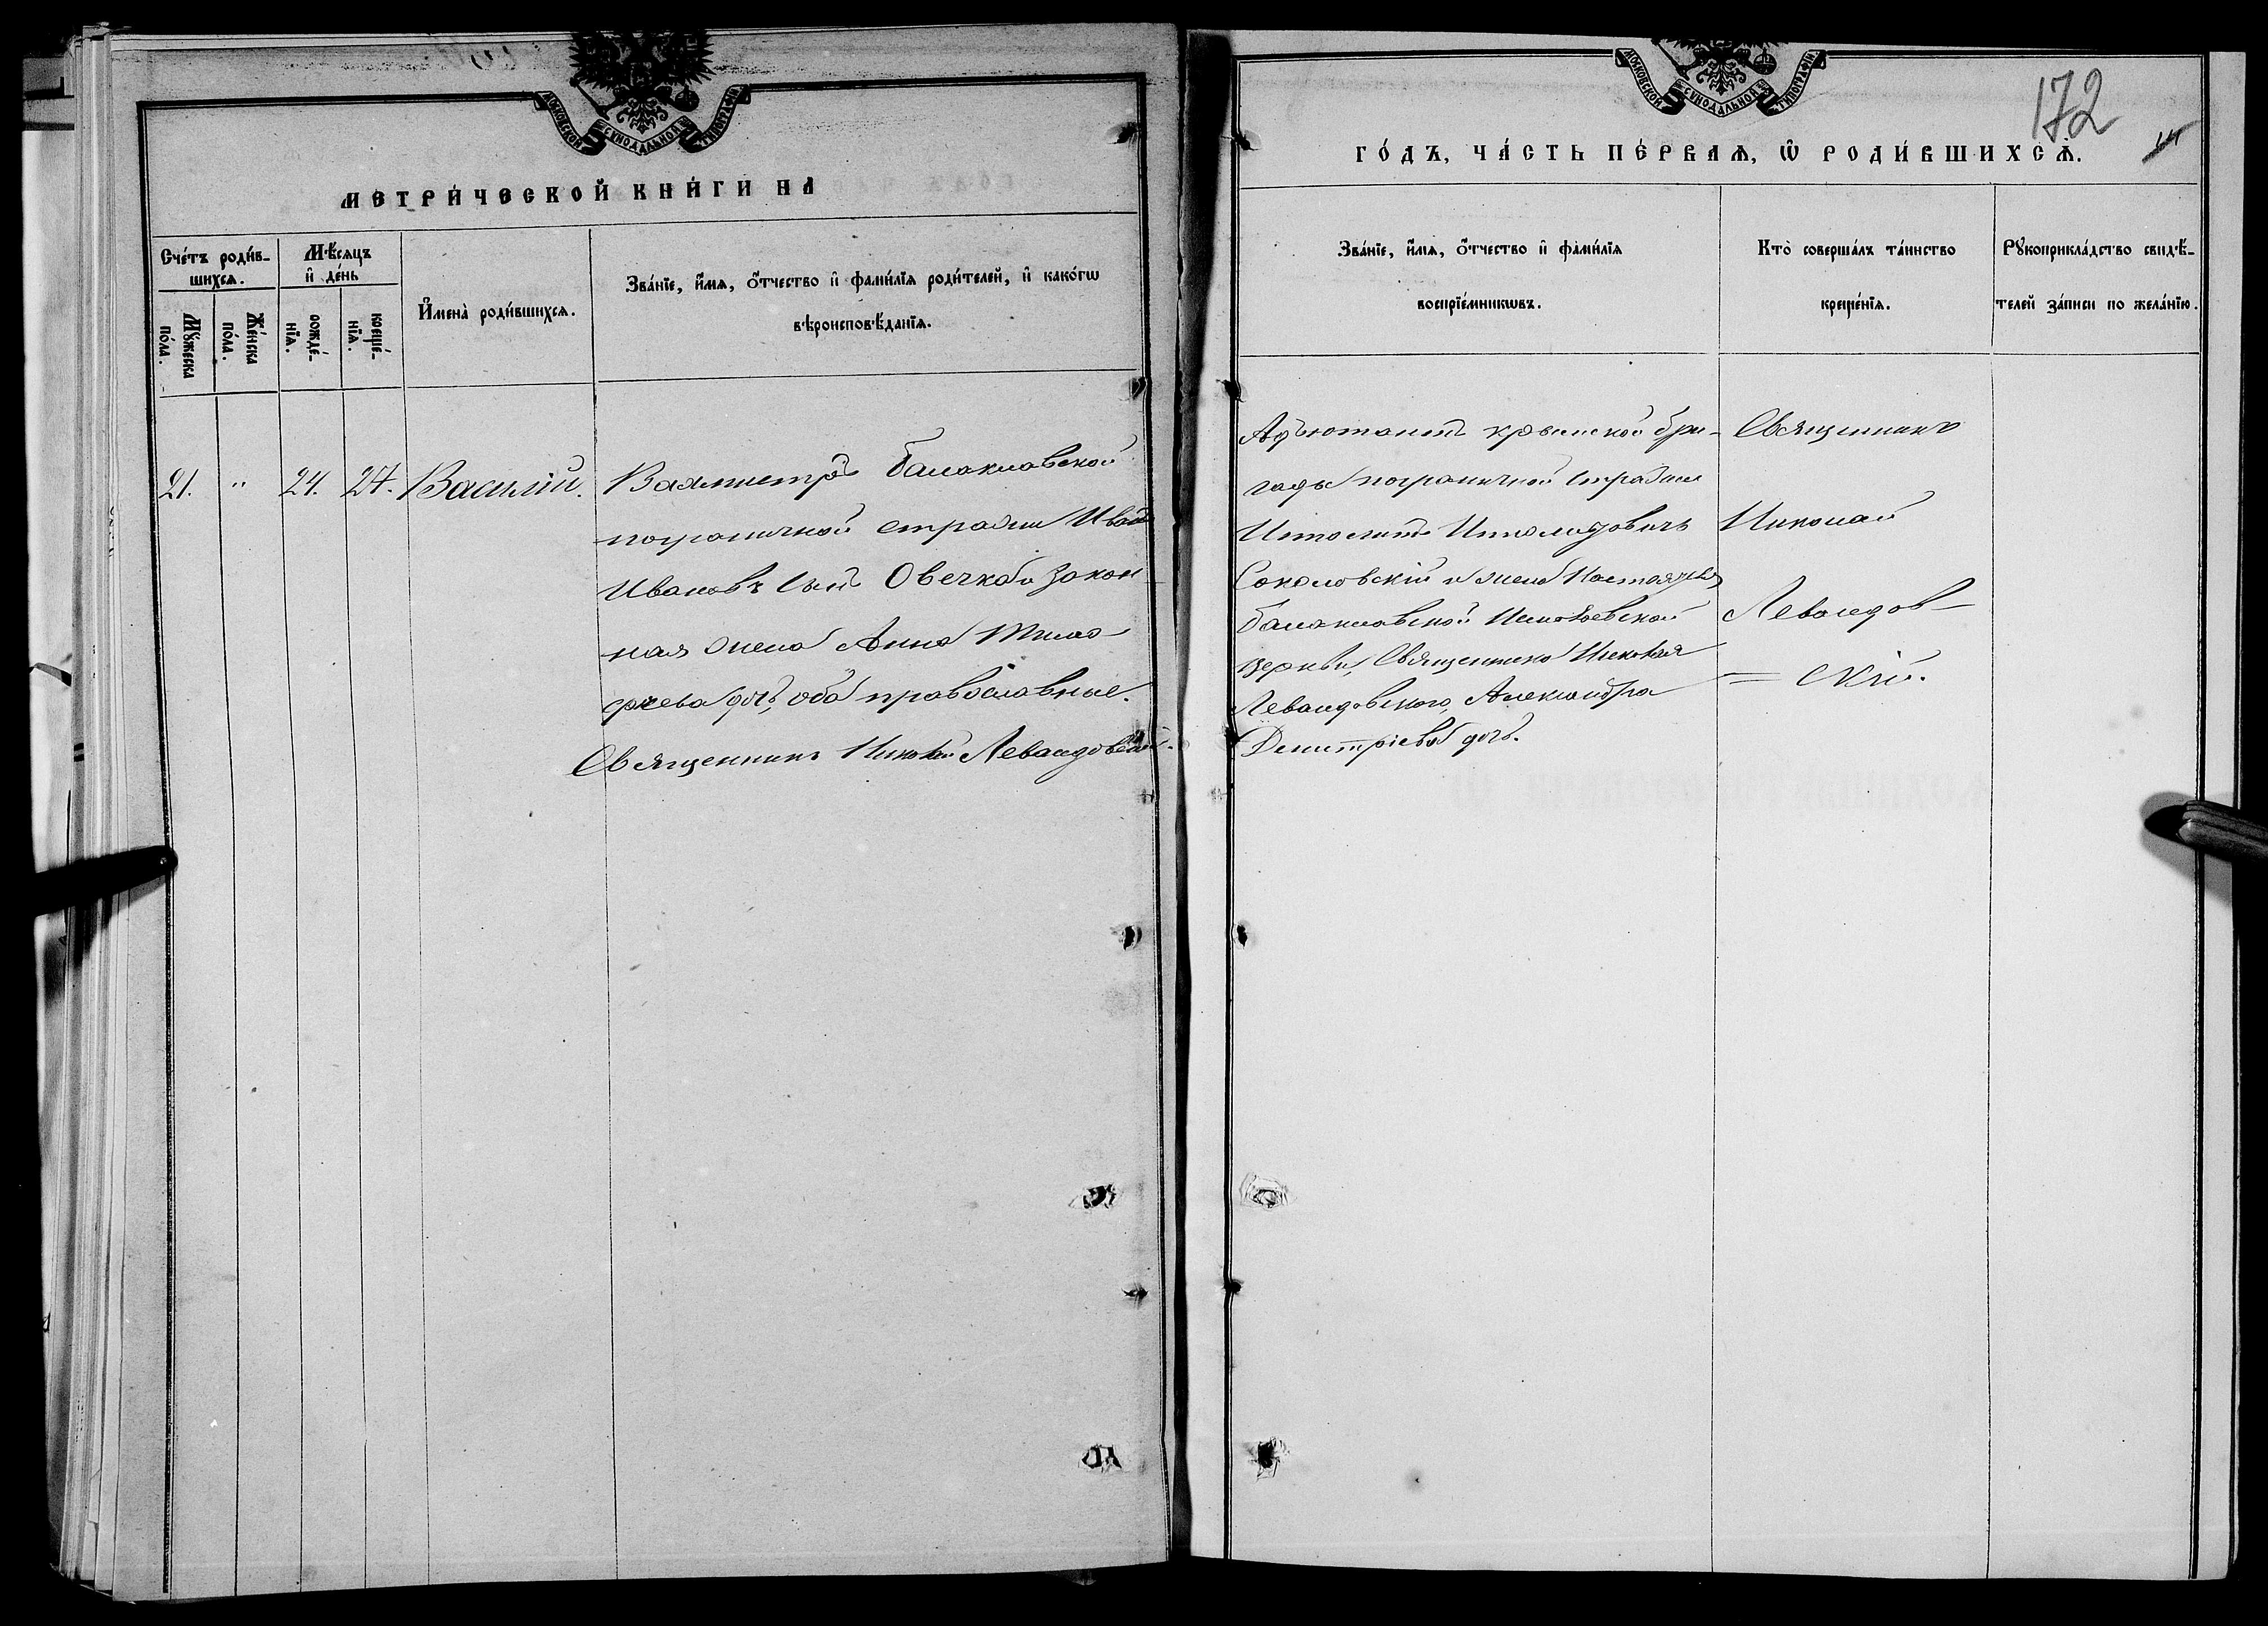 МОСКОВСКОЙ СѴНОДАЛЬНОЙ ТИПОГРАФІИ
МЕТРИ́ЧЕСКОЙ КНИ́ГИ НА
Сче́тъ роди́в-
шихсѧ.
Мꙋ́жеска
по́ла.
Же́нска
по́ла.
Мѣ́сѧцъ
и҆ де́нь
рожде́-
нїѧ.
креще́-
нїѧ.
И҆мена̀ роди́вшихсѧ.
Зва́нїе, и҆́мѧ, ѻ҆́тчество и҆ фами́лїѧ роди́телей, и҆ како́гѡ
вѣроисповѣ́данїѧ.
21. " 24. 27. Василій.
Вахмистръ балаклавской
пограничной стражи Иванъ
Ивановъ сынъ Овечка и закон
ная жена Анна
дочь, оба православные.
Священникъ Николай Левандовскій.
МОСКОВСКОЙ СѴНОДАЛЬНОЙ ТИПОГРАФІИ
172
ГО́ДЪ, ЧА́СТЬ ПЕ́РВАѦ, Ѡ҆ РОДИ́ВШИХСѦ.
Зва́нїе, и҆́мѧ, ѻ҆́тчество и҆ фами́лїѧ
воспрїе́мникѡвъ.
Кто̀ соверша́лъ та́инство
креще́нїѧ.
Рꙋкоприкла́дство свидѣ́-
телей за́писи по жела́нїю.
Адъютантъ крымской бри-
гады пограничной стражи
Ипполитъ Ипполитовичъ
Соколовскій и жена Настоятеля
балаклавской церкви, Священника Николая
Левандовскаго, Александра
Димитріева дочь.
Священникъ
Николай
Левандов-
= скій.